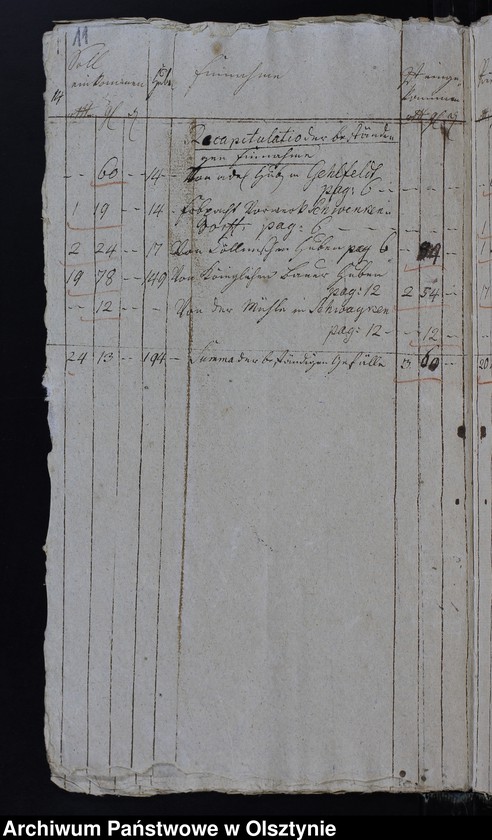 11
Soll
einkommen Hub. Einnahme Ist einge
14 kommen
rtl gl d rtl gl d
Recapitulatio der bestände
gen Einnahme
60 14 Von adel Hub in Gehlfeldt
pag: 6
1 19 14 Erbpacht Vorwerk Schwenken
dorff pag: 6
2 24 17 Von Cöllmischen Huben pag 6
19 78 149 Von Königlichen Bauer Huben
pag: 12 2 54
12 Von der Mühle in
pag: 12 12
24 13 194 Summa der beständigen Gefälle 23 60
Archiwum Państwowe w Olsztynie